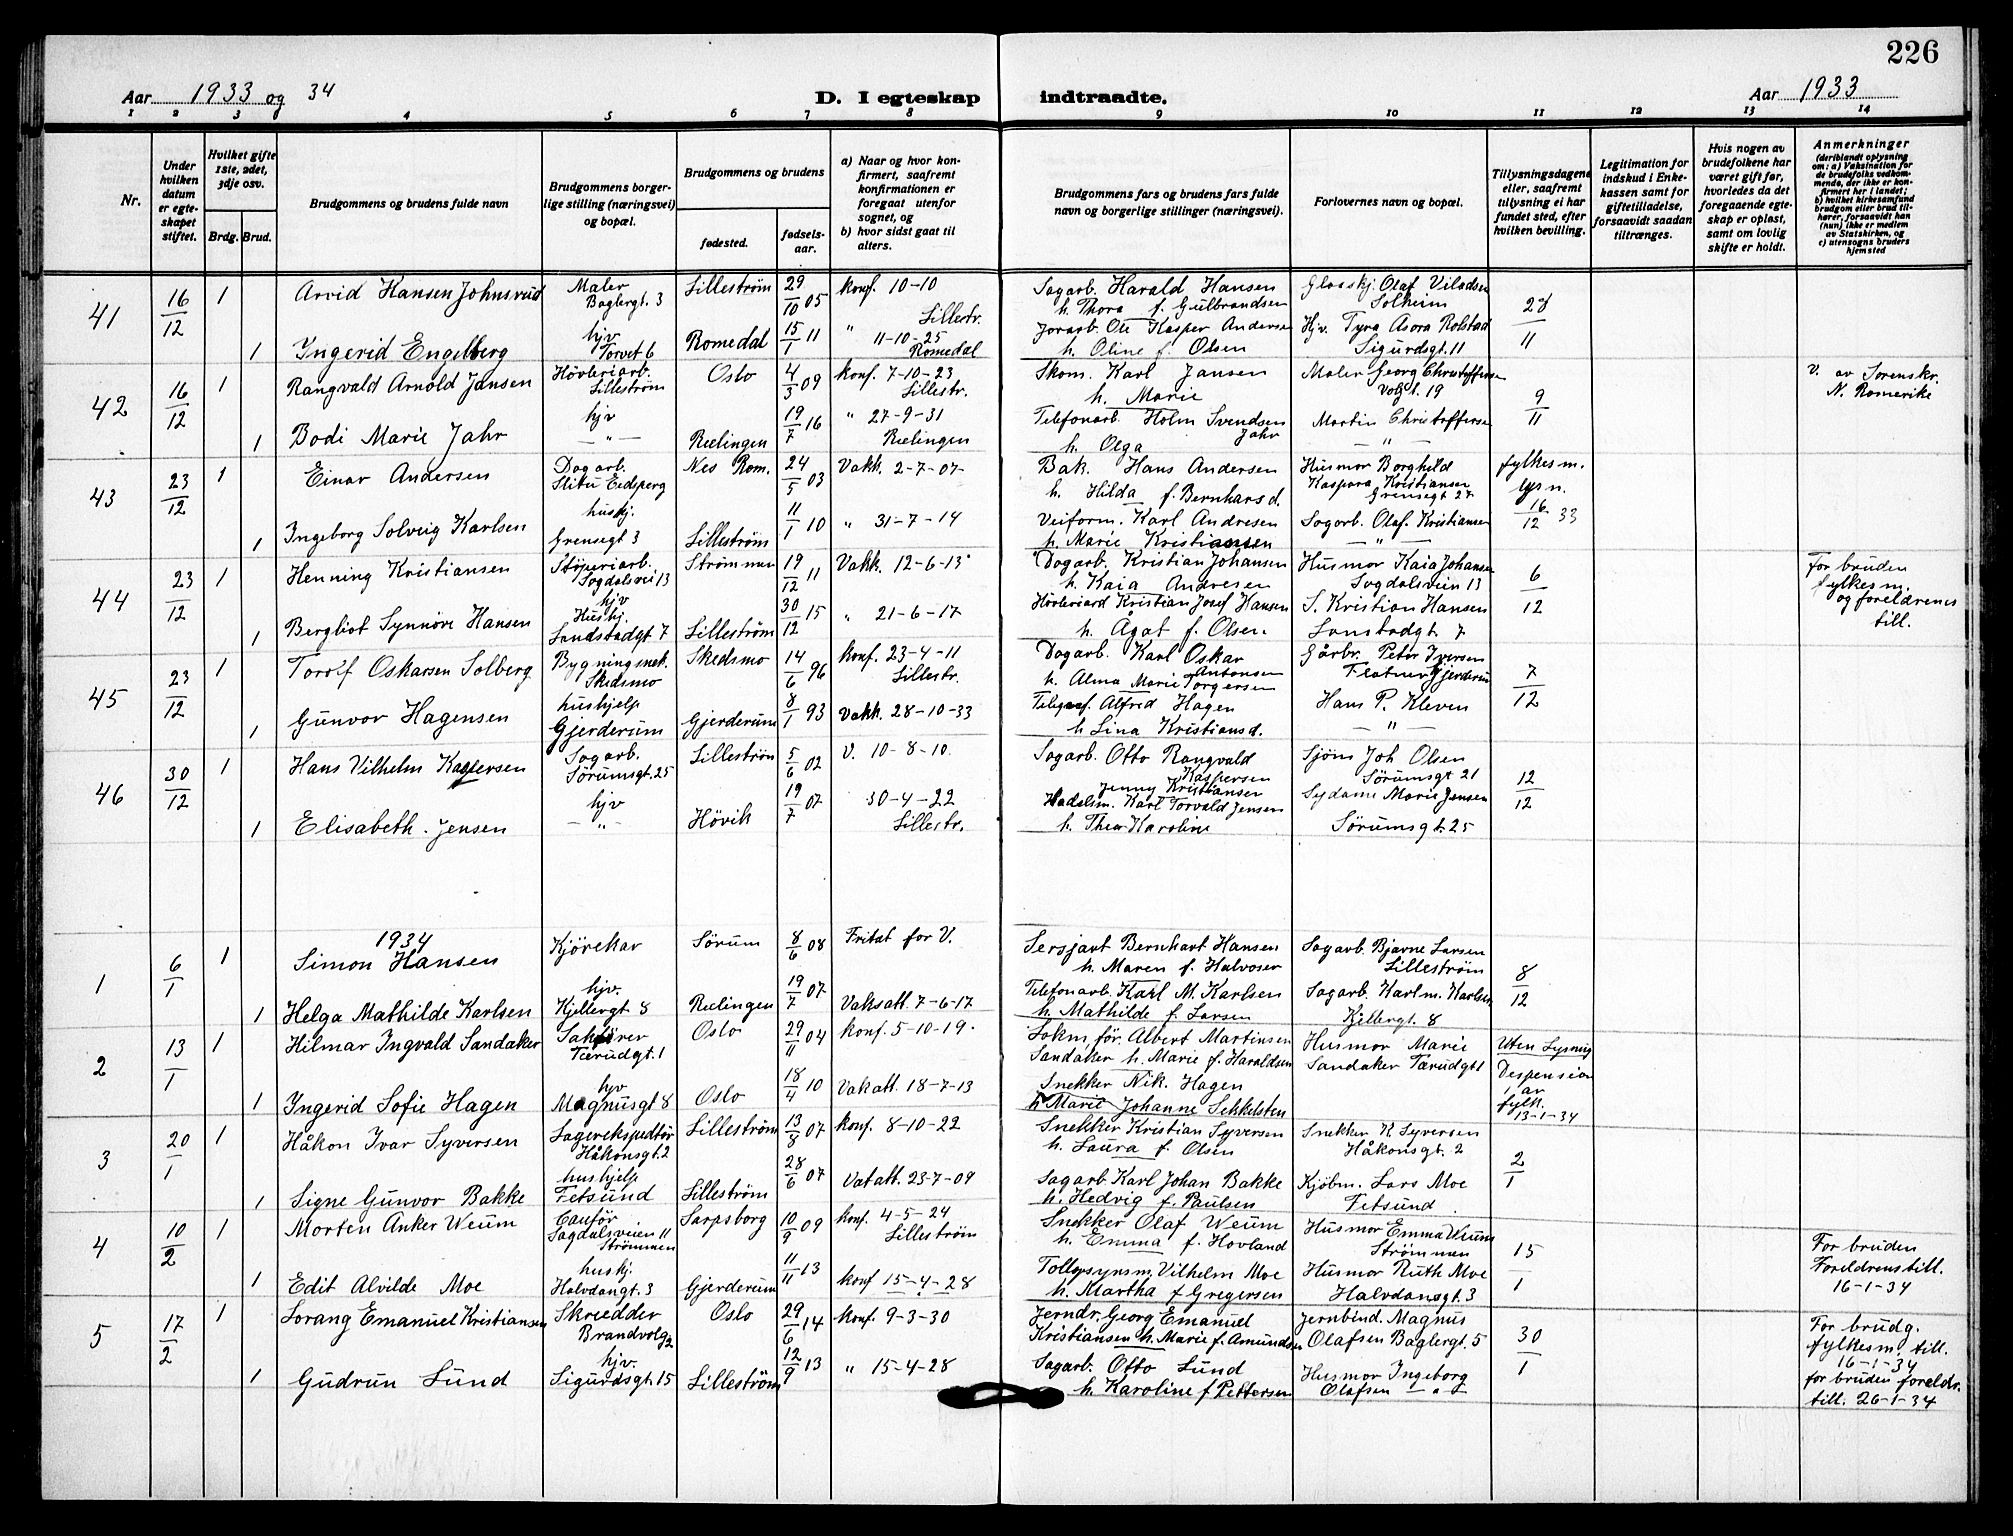 226
Aar 1933 og 34
D. I egteskap indtraadte.
Aar 1933
1 2 3 4 5 6 7 8 9 10 11 12 13 14
Nr.
Under hvilken datum er egteskapet stiftet.
Hvilket gifte 1ste, 2det, 3dje osv.
Brdg. Brud.
Brudgommens og brudens fulde navn
Brudgommens borgerlige stilling (næringsvei) og bopæl.
Brudgommens og brudens
fødested.
fødselsaar.
a) Naar og hvor konfirmert, saafremt konfirmationen er foregaat utenfor sognet, og
b) hvor sidst gaat til alters.
Brudgommens fars og brudens fars fulde navn og borgerlige stillinger (næringsvei).
Forlovernes navn og bopæl.
Tillysningsdagene eller, saafremt tillysning ei har fundet sted, efter hvilken bevilling.
Legitimation for indskud i Enkekassen samt for giftetilladelse, forsaavidt saadan tiltrænges.
Hvis nogen av brudefolkene har været gift før, hvorledes da det foregaaende egteskap er opløst, samt om lovlig skifte er holdt.
Anmerkninger
(deriblandt oplysning om: a) Vaksination for de brudefolks vedkommende, der ikke er konfirmert her i landet; b) hvilket kirkesamfund brudgom eller brud tilhører, forsaavidt han (hun) ikke er medlem av Statskirken, og c) utensogns bruders hjemsted
41 16/12 1 Arvid Hansen Johnsrud Maler Baglergt. 3 Lillestrøm 29/10 05 konf. 10-10 Lillestr. Sagarb. Harald Hansen h. Thora f. Gulbrandsen Olaf Viladsen Solheim 28/11
1 Ingerid Engelberg hjv Torvet 6 Romedal 15/1 11 " 11-10-25 Romedal Jorarb. Ole Kasper Andersen h. Oline f. Olsen Hjv. Tyra Asora Rolstad Sigurdsgt. 11
42 16/12 1 Rangvald Arnold Jansen Høvleriarb. Lillestrøm Oslo 4/3 09 konf. 7-10-23 Lillestr. Skom. Karl Jansen h. Marie Maler Georg Christoffersen Volgt. 19 9/11 V. av Sorenskr. N. Romerike
1 Bodi Marie Jahr hjv — " — Rælingen 19/7 16 " 27-9-31 Rælingen Telefonarb. Holm Svendsen Jahr h. Olga Martin Christoffersen — " —
43 23/12 1 Einar Andersen Dagarb. Slitu Eidsperg Nes Rom. 24/5 03 Vakk. 2-7-07 Bak. Hans Andersen h. Hilda f. Bernhars d. Husmor Borghild Kaspara Kristiansen Grensegt 27 fylkesm. lysn. 16/12 33
1 Ingeborg Solveig Karlsen huskj. Grensegt 3 Lillestrøm 11/1 10 " 31-7-14 Veiform. Karl Andresen h. Marie Kristiansen Sagarb. Olaf Kristiansen — " —
44 23/12 1 Henning Kristiansen Støperiarb. Sogdalsvei 13 Strømmen 19/12 11 Vakk. 12-6-13 Dagarb. Kristian Johansen h. Kaia Andresen Husmor Kaia Johansen Sogdalsveien 13 6/12 For bruden fylkesm. og foreldrenes till.
1 Bergliot Synnøve Hansen hjv Huskj. Sandstadgt. 7 Lillestrøm 30/12 15 " 21-6-17 Høvleriarb Kristian Josef Hansen h. Ågot f. Olsen. S. Kristian Hansen 7
45 23/12 1 Torolf Oskarsen Solberg Bygningssnek. Skedsmo Skedsmo 14/6 96 konf. 23-4-11 Lillestr. Dagarb. Karl Oskar Antonsen h. Alma Marie Torgersen Gårbr. Peter Iversen Flatner Gjerderum 7/12
1 Gunvor Hagensen hushjelp Gjerderum Gjerderum 8/1 93 Vakk. 28-10-33 Telegraf. Alfred Hagen h Lina Kristiansd. Hans P. Kleven — " —
46 30/12 1 Hans Vilhelm Kaspersen Sagarb. Sørumsgt. 25 Lillestrøm 5/6 02 V. 10-8-10. Sagarb. Otto Rangvald Kaspersen Jenny Kristiansen Sjøm Joh Olsen Sørumsgt 21 12/12
1 Elisabeth Jensen hjv — " — Høvik 19/7 07 30-4-22 Lillestr. Karl Torvald Jensen h. Thea Karoline Sydame Marie Jensen Sørumsgt. 25
1934
1 6/1 1 Simon Hansen Kjørekar Sørum 8/6 08 Fritat for V. Sersjant Bernhart Hansen h. Maren f. Halvosen Sagarb. Bjarne Larsen Lillestrøm 8/12
1 Helga Mathilde Karlsen hjv. Kjellergt 8 Rælingen 19/7 07 Vaksatt. 7-6-17 Telefonarb. Karl M. Karlsen h. Mathilde f. Larsen Sagarb. Karl m. Karlsen Kjellergt. 8
2 13/1 1 Hilmar Ingvald Sandaker Sakfører Tærudgt. 1 Oslo 29/11 04 konf. 5-10-19. Lokm.før. Albert Martinsen Sandaker h. Marie f. Haraldsen Husmor Marie Sandaker Tærudgt 1 Uten Lysning Despension av fylk. 13-1-34
1 Ingerid Sofie Hagen hjv Magnusgt 8 Oslo 18/4 10 Vakatt. 18-7-13 Snekker Nik. Hagen h Marie Johanne Sekkelsten
3 20/1 1 Håkon Ivar Syversen Lagerekspeditør Håkonsgt. 2 Lillestrøm 13/8 07 konf. 8-10-22 Snekker Kristian Syversen h. Laura f. Olsen Snekker K. Syversen Håkonsgt. 2 2/1
1 Signe Gunvor Bakke hushjelp Fetsund Lillestrøm 28/6 07 Vakatt. 23-7-09 Sagarb Karl Johan Bakke h. Hedvig f. Paulsen Kjøbm. Lars Moe Fetsund
4 10/2 1 Morten Anker Weum Sagdalsveien 11 Strømmen Sarpsborg 10/9 09 konf. 4-5-24 Lillestrøm Snekker Olaf Weum h. Emma f. Hovland Husmor Emma Weum Strømmen 15/1 For bruden Foreldrenstill. 16-1-34
1 Edit Alvilde Moe huskj. Halvdangt. 3 Gjerderum 11/11 13 konf 15-4-28 Tollopsynsm. Vilhelm Moe h. Martha f Gregersen Husmor Ruth Moe Halvdansgt. 3
5 17/2 1 Sorang Emanuel Kristiansen Skredder Brandvolg 2 Oslo 29/6 14 konf. 9-3-30 Jerndr. Georg Emanuel Kristiansen h. Marie f. Amundsen Jernbind. Magnus Olafsen Baglergt. 5 30/1 For brudg. fylkesm. till. 16-1-34 for bruden foreldr. till. 26-1-34
1 Gudrun Lund hjv. Sigurdsgt. 15 Lillestrøm 12/9 13 " 15-4-28 Sagarb. Otto Lund h. Karoline f Pettersen Husmor Ingeborg Olafsen — " —